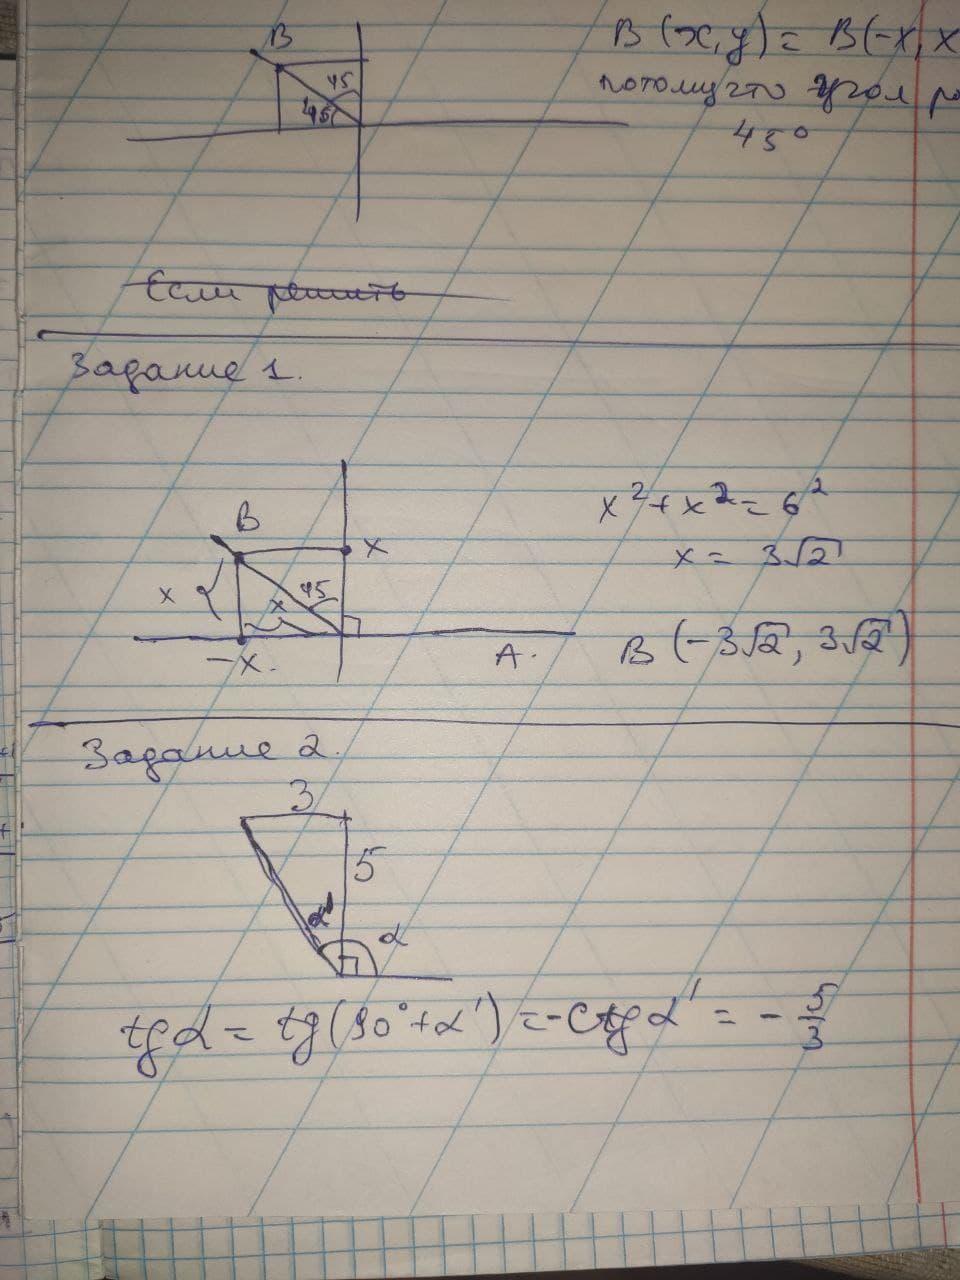 B
45
45
B (x, y) = B(-x, x
потому что угол
45°
Если решить
Задание 1.
B
x
45
x
x
-x.
A.
x² + x² = 6²
x = 3√2
B (-3√2, 3√2)
Задание 2.
3
5
α'
α
tg α = tg(90° + α') = -ctg α' = - 5/3